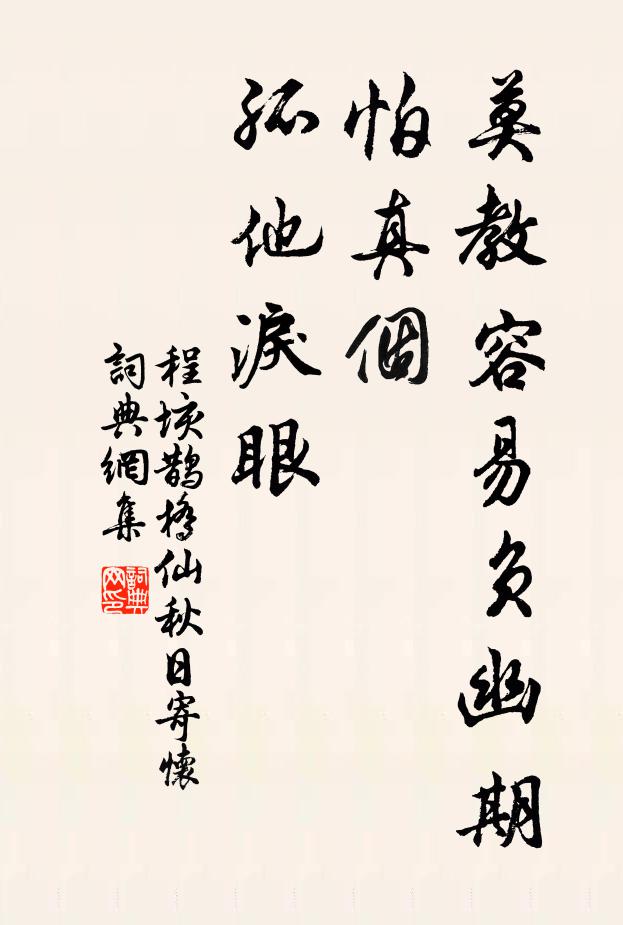 莫教容易負幽期
怕真個
孤他淚眼
程垓鵲橋仙秋日寄懷
詞典網集
詞典網印